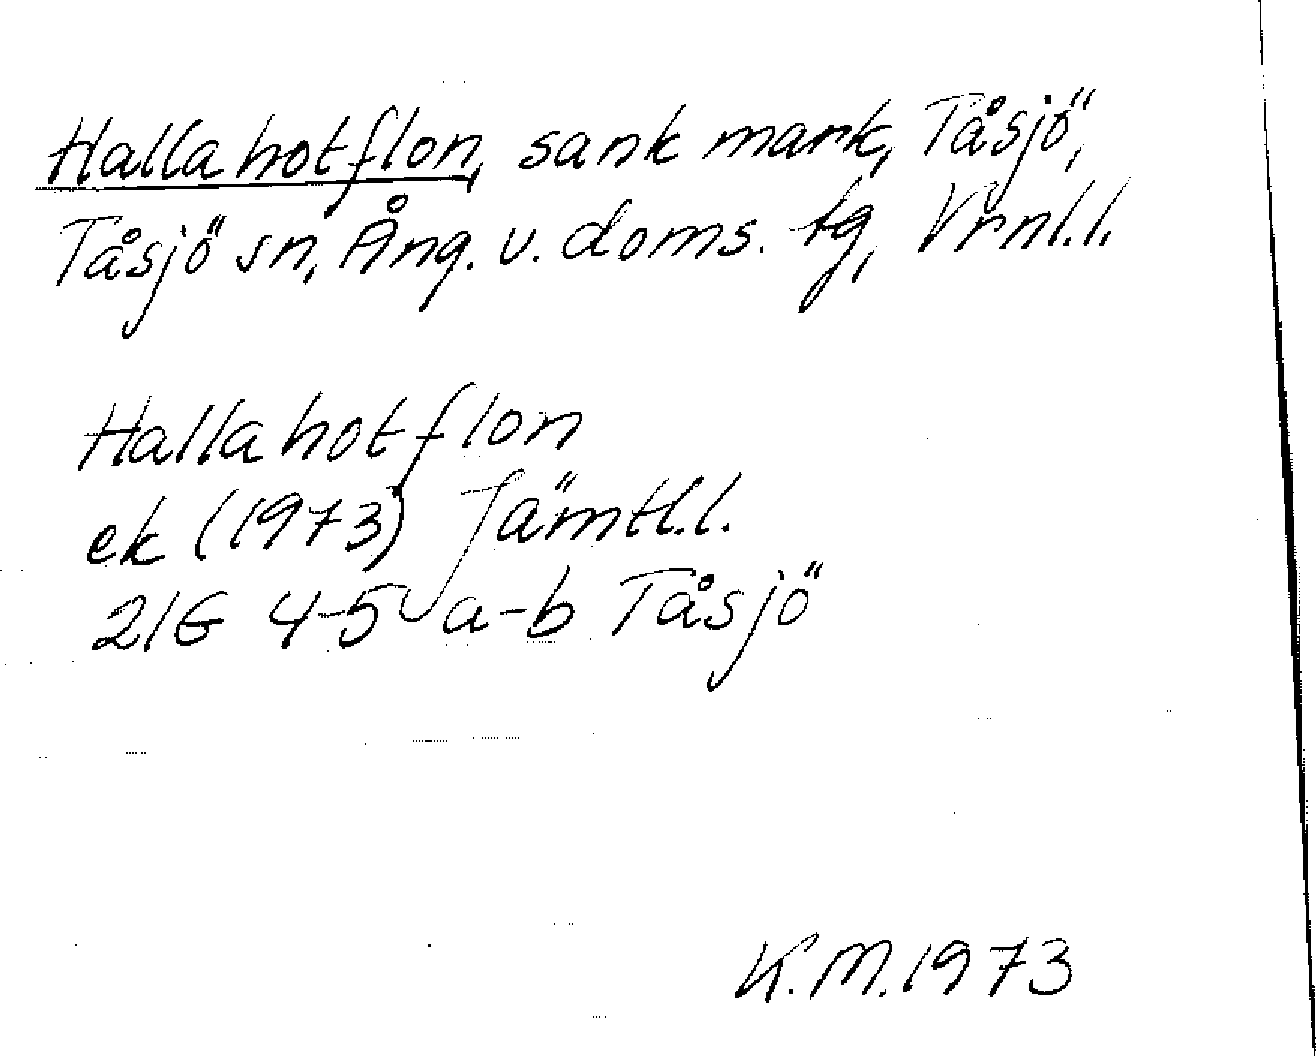 Hallahotflon, sank mark, Tåsjö,
Tåsjö sn, Ång. v. doms. tg, Vrnl.l.
Hallahotflon
ek (1973) Jämtl.l.
21G 4-5 a-b Tåsjö
K.M. 1973